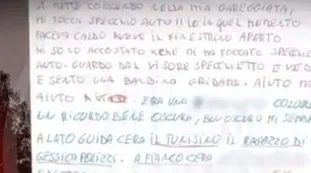 A METTO CORRENDO NELLA MIA CAREGGIATA,
MI TOCCA SPECCHIO AUTO IO IN QUEL MOMENTO
FACEVA CALDO AVEVO IL FINESTRINO APERTO
MI SONO ACCOSTATO XCHE MI HA TOCCATO SPECCHIO
AUTO. GUARDO DAL VISORE SPECCHIETTO E VEDO
E SENTO UNA BAMBINA GRIDARE. AIUTO
AIUTO ERA UNO COLORE
UN RICORDO BENE OSCURA, BLU OSCURO MI SEMBRA
A LATO GUIDA CERA IL TUNISINO IL RAGAZZO DI
GESSICA PULIZZI. A FIANCO CERA